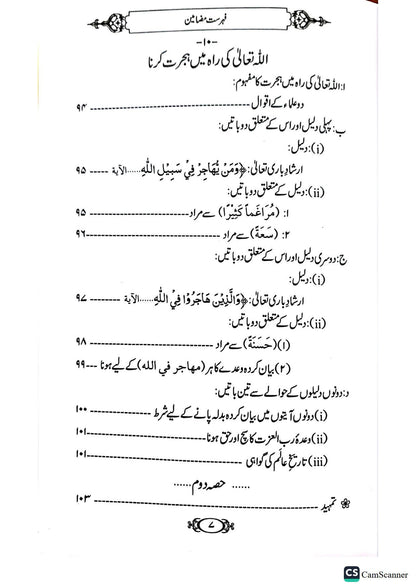 فہرست مضامین
-۱۰-
اللہ تعالیٰ کی راہ میں ہجرت کرنا
ا: اللہ تعالیٰ کی راہ میں ہجرت کا مفہوم:
دو علماء کے اقوال ---------- ۹۴
ب: پہلی دلیل اور اس کے متعلق دو باتیں:
(i) دلیل:
ارشادِ باری تعالیٰ: ﴿وَمَنْ يُّهَاجِرْ فِيْ سَبِيْلِ اللّٰهِ...... الآیۃ ---- ۹۵
(ii) دلیل کے متعلق دو باتیں:
۱: (مُرَاغَمًا كَثِيْرًا) سے مراد ---------- ۹۵
۲: (سَعَةً) سے مراد ---------- ۹۶
ج: دوسری دلیل اور اس کے متعلق دو باتیں:
(i) دلیل:
ارشادِ باری تعالیٰ: ﴿وَالَّذِيْنَ هَاجَرُوْا فِيْ اللّٰهِ...... الآیۃ -------- ۹۷
(ii) دلیل کے متعلق دو باتیں:
(۱) (حَسَنَةً) سے مراد ---------- ۹۸
(۲) بیان کردہ وعدے کا ہر (مهاجر في الله) کے لیے ہونا --- ۹۹
د: دونوں دلیلوں کے حوالے سے تین باتیں:
(i) دونوں آیتوں میں بیان کردہ بدلہ پانے کے لیے شرط ---------- ۱۰۰
(ii) وعدۂ رب العزت کا سچ اور حق ہونا ---------- ۱۰۱
(iii) تاریخِ عالَم کی گواہی ---------- ۱۰۱
...... حصہ دوم ......
تمہید ---------- ۱۰۳
۷
CS CamScanner